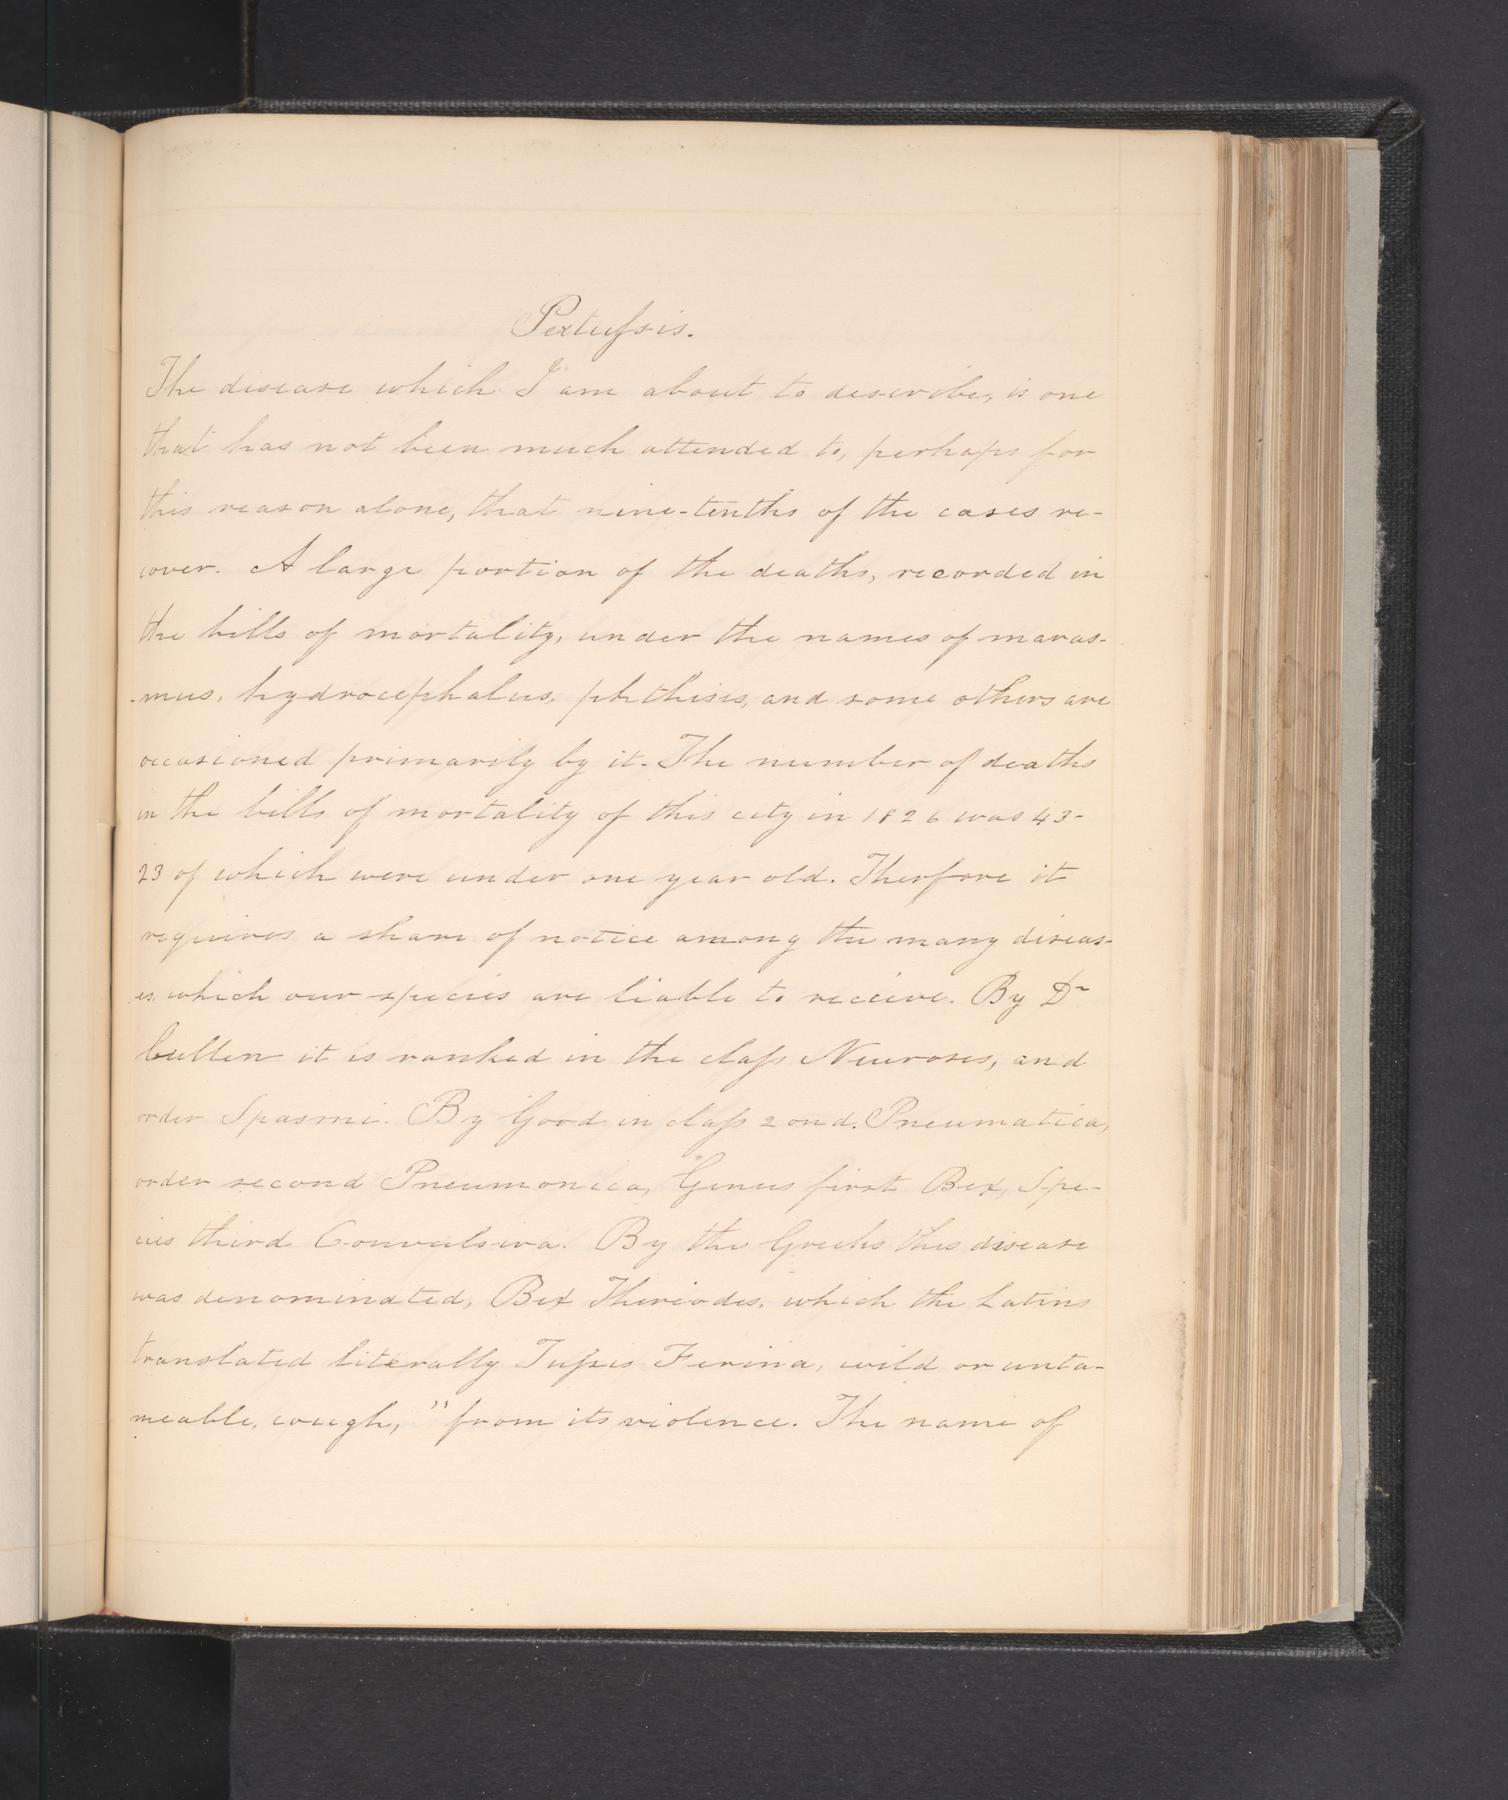 Pertussis.
The disease which I am about to describe, is one
that has not been much attended to, perhaps for
this reason alone, that nine-tenths of the cases re-
cover. A large portion of the deaths, recorded in
the bills of mortality, under the names of maras-
-mus, hydrocephalus, phthisis, and some others are
occasioned primarily by it. The number of deaths
in the bills of mortality of this city in 1826 was 43-
23 of which were under one year old. Therfore it
requires a share of notice among the many diseas-
es which our species are liable to receive. By Dr
Cullen it is ranked in the class Neuroses, and
order Spasmi. By Good in class 2ond. Pneumatica,
order second Pneumonica, Genus first Bex, Spe-
cies third Convulsiva. By the Greeks this disease
was denominated, Bex Theriodes, which the Latins
translated literally Tussis Ferina, wild or unta-
meable, cough, " from its violence. The name of